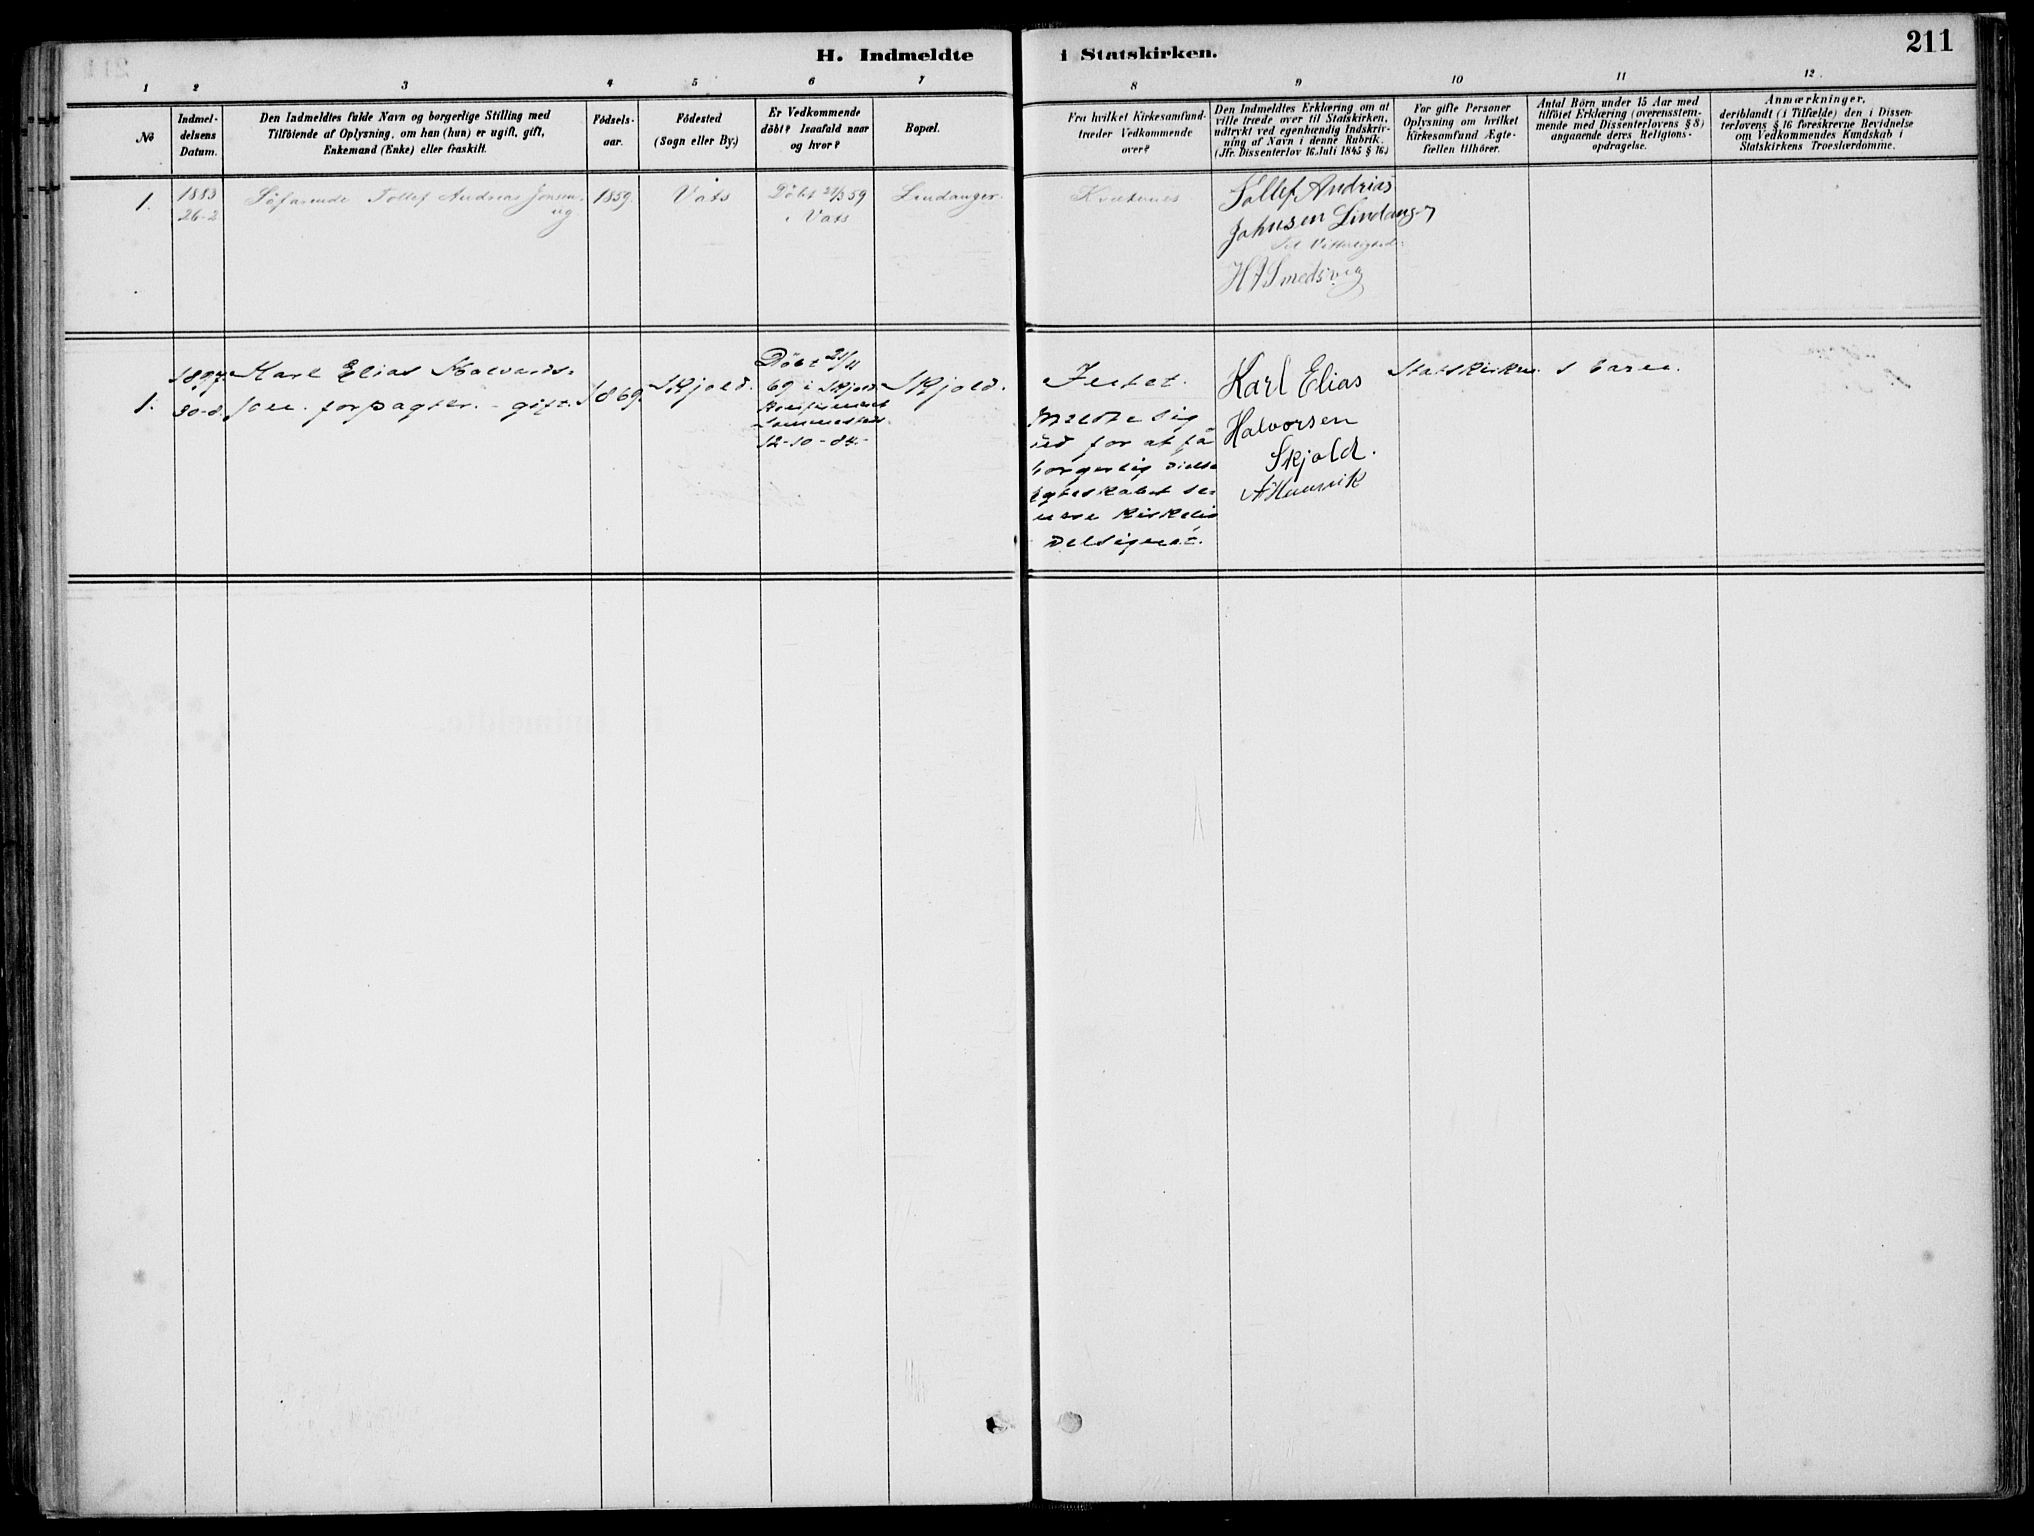 H. Indmeldte i Statskirken.
211
1 2 3 4 5 6 7 8 9 10 11 12.
No
Indmel-
delsens
Datum.
Den Indmeldtes fulde Navn og borgerlige Stilling med
Tilföiende af Oplysning, om han (hun) er ugift, gift,
Enkemand (Enke) eller fraskilt.
Födsels-
aar.
Födested
(Sogn eller By.)
Er Vedkommende
döbt? Isaafald naar
og hvor?
Bopæl.
Fra hvilket Kirkesamfund
træder Vedkommende
over?
Den Indmeldtes Erklæring om at
ville træde over til Statskirken,
udtrykt ved egenhændig Indskriv-
ning af Navn i denne Rubrik.
(Jfr. Dissenterlov 16 Juli 1845 § 16)
For gifte Personer
Oplysning om hvilket
Kirkesamfund Ægte-
fællen tilhörer.
Antal Börn under 15 Aar med
tilföiet Erklæring (overensstem-
mende med Dissenterlovens § 8)
angaaende deres Religions-
opdragelse.
Anmærkninger,
deriblandt (i Tilfælde) den i Dissen-
terlovens § 16 foreskrevne Bevidnelse
om Vedkommendes Kundskab i
Statskirkens Troeslærdomme.
1.
1883
26-2
Söfarende Tollef Andreas Jonsen,
ug
1859.
Vats
Döbt 21/3 59
i Vats
Lindanger.
Kvækernes
Tollef Andrias
Johnsen Lindang
Til Vitterlighed:
H J Smedsvig
1.
1897
30-8.
Karl Elias Halvards-
sen. forpagter. - gift.
1869.
Skjold.
Döbt 21/11
69 i Skjold.
Konfirmeret
12-10-84.
Skjold.
Intet.
Meldte sig
ud for at få
borgerlig vielse
Egteskabet se-
nere kirkelig
velsignet.
Karl Elias
Halvorsen
Skjold.
Statskirken
1 barn.